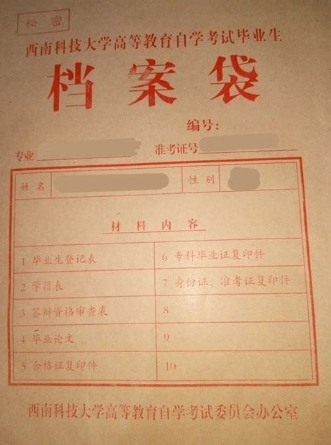 秘密
西南科技大学高等教育自学考试毕业生
档案袋
编号：
专业 准考证号
姓名 性别
材料内容
1 毕业生登记表 6 专科毕业证复印件
2 学籍表 7 身份证、准考证复印件
3 答辩资格审查表 8
4 毕业论文 9
5 合格证复印件 10
西南科技大学高等教育自学考试委员会办公室